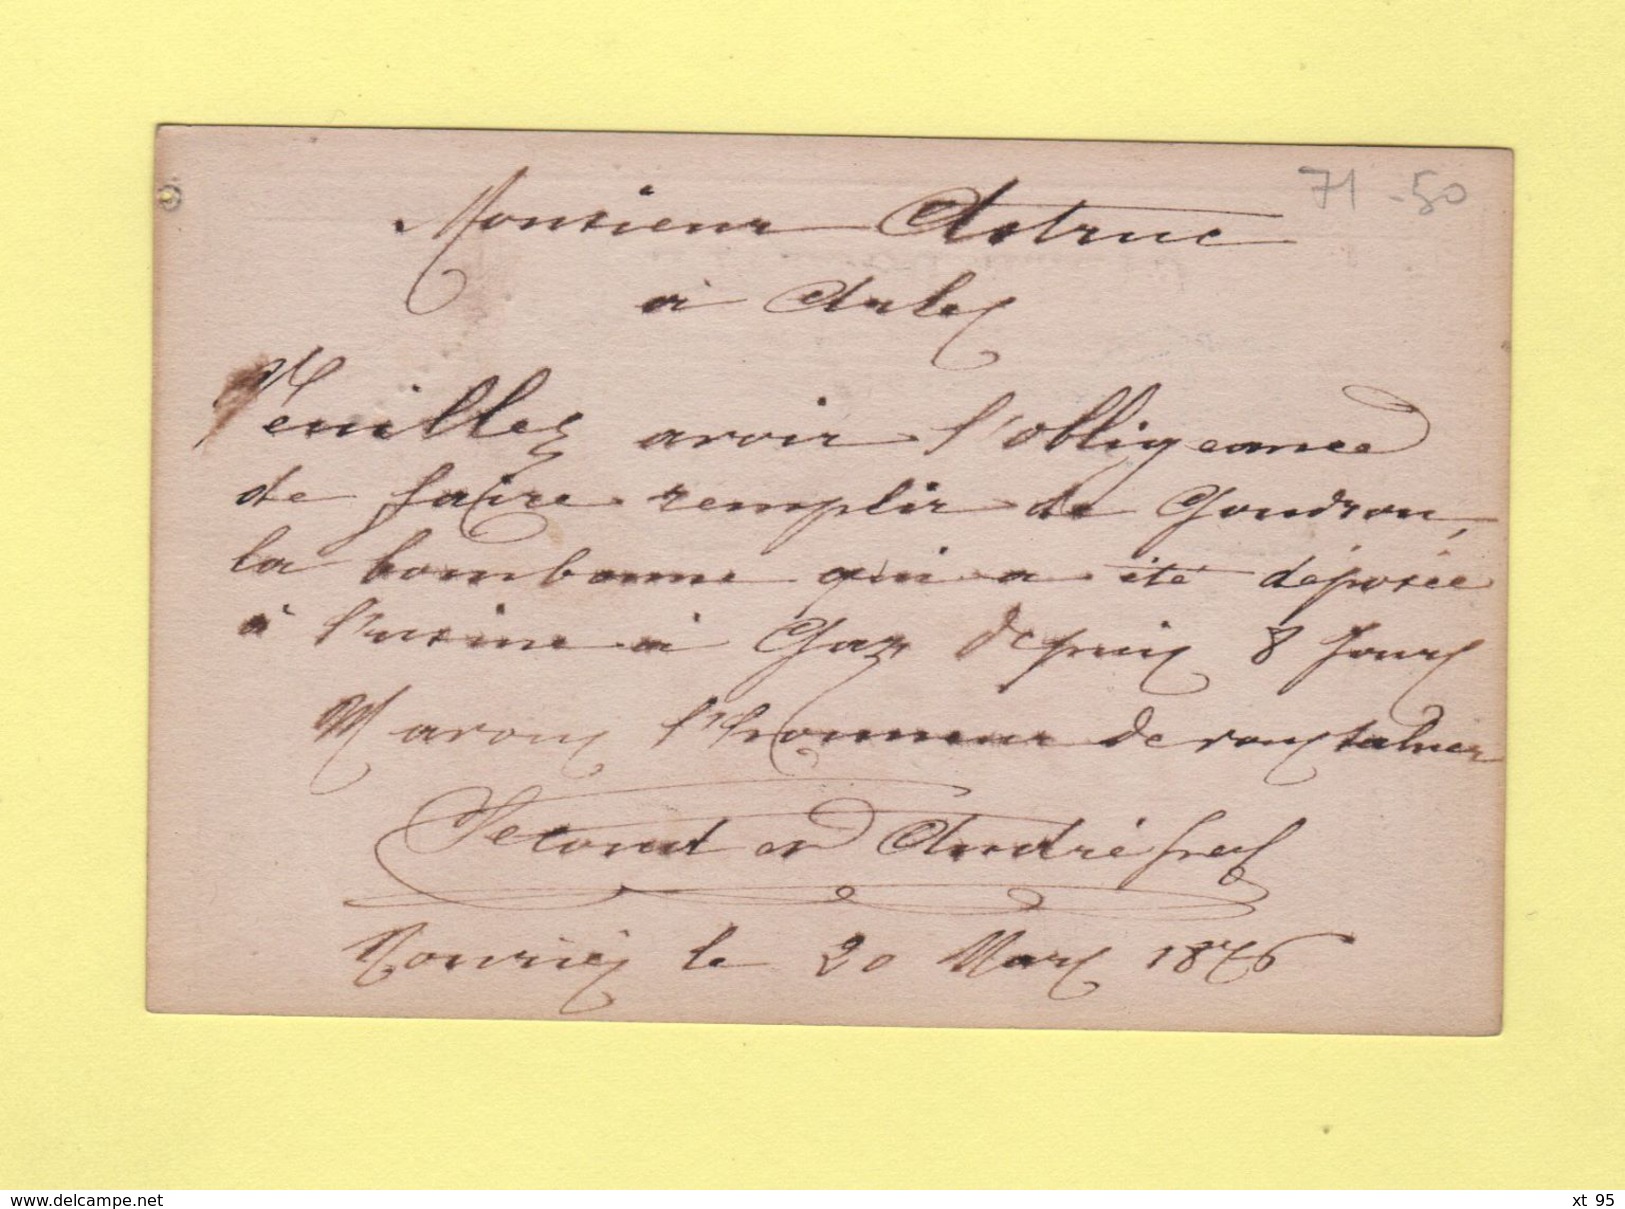 71 - 50
Monsieur Astruc
à Arles
Veuillez avoir l'obligeance
de faire remplir de Goudron,
la bombonne qui a été déposée
à l'usine à Gaz depuis 8 jours
Navons l'honneur de vous saluer
Second et André frères
Mouriès le 20 Mars 1876
www.delcampe.net
xt 95